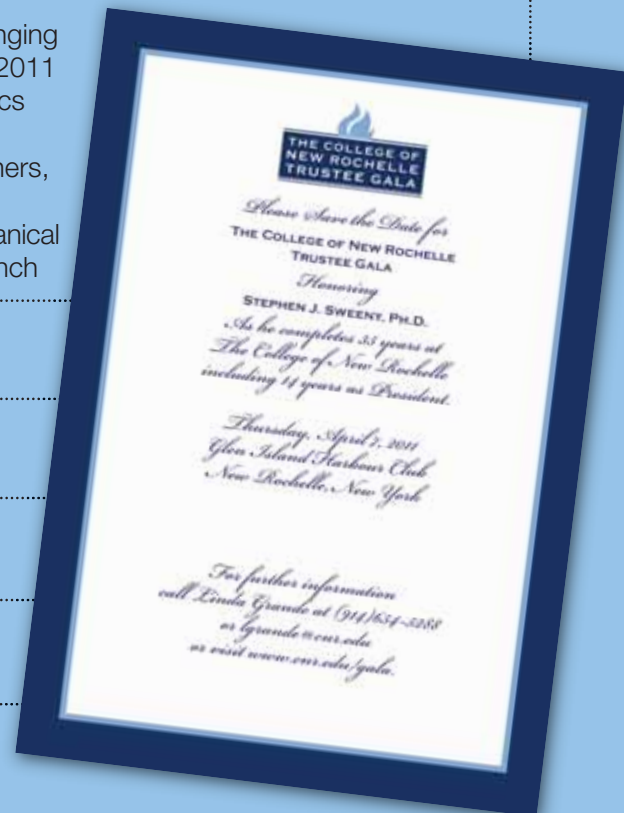 nging
2011
cs
ners,
anical
nch
THE COLLEGE OF
NEW ROCHELLE
TRUSTEE GALA
Please Save the Date for
THE COLLEGE OF NEW ROCHELLE
TRUSTEE GALA
Honoring
STEPHEN J. SWEENY, PH.D.
As he completes 35 years at
The College of New Rochelle
including 14 years as President.
Thursday, April 7, 2011
Glen Island Harbour Club
New Rochelle, New York
For further information
call Linda Grande at (914)654-5288
or lgrande@cnr.edu
or visit www.cnr.edu/gala.